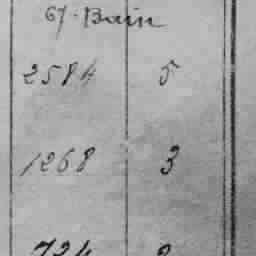 67. Bain
2584 5
1268 3
724